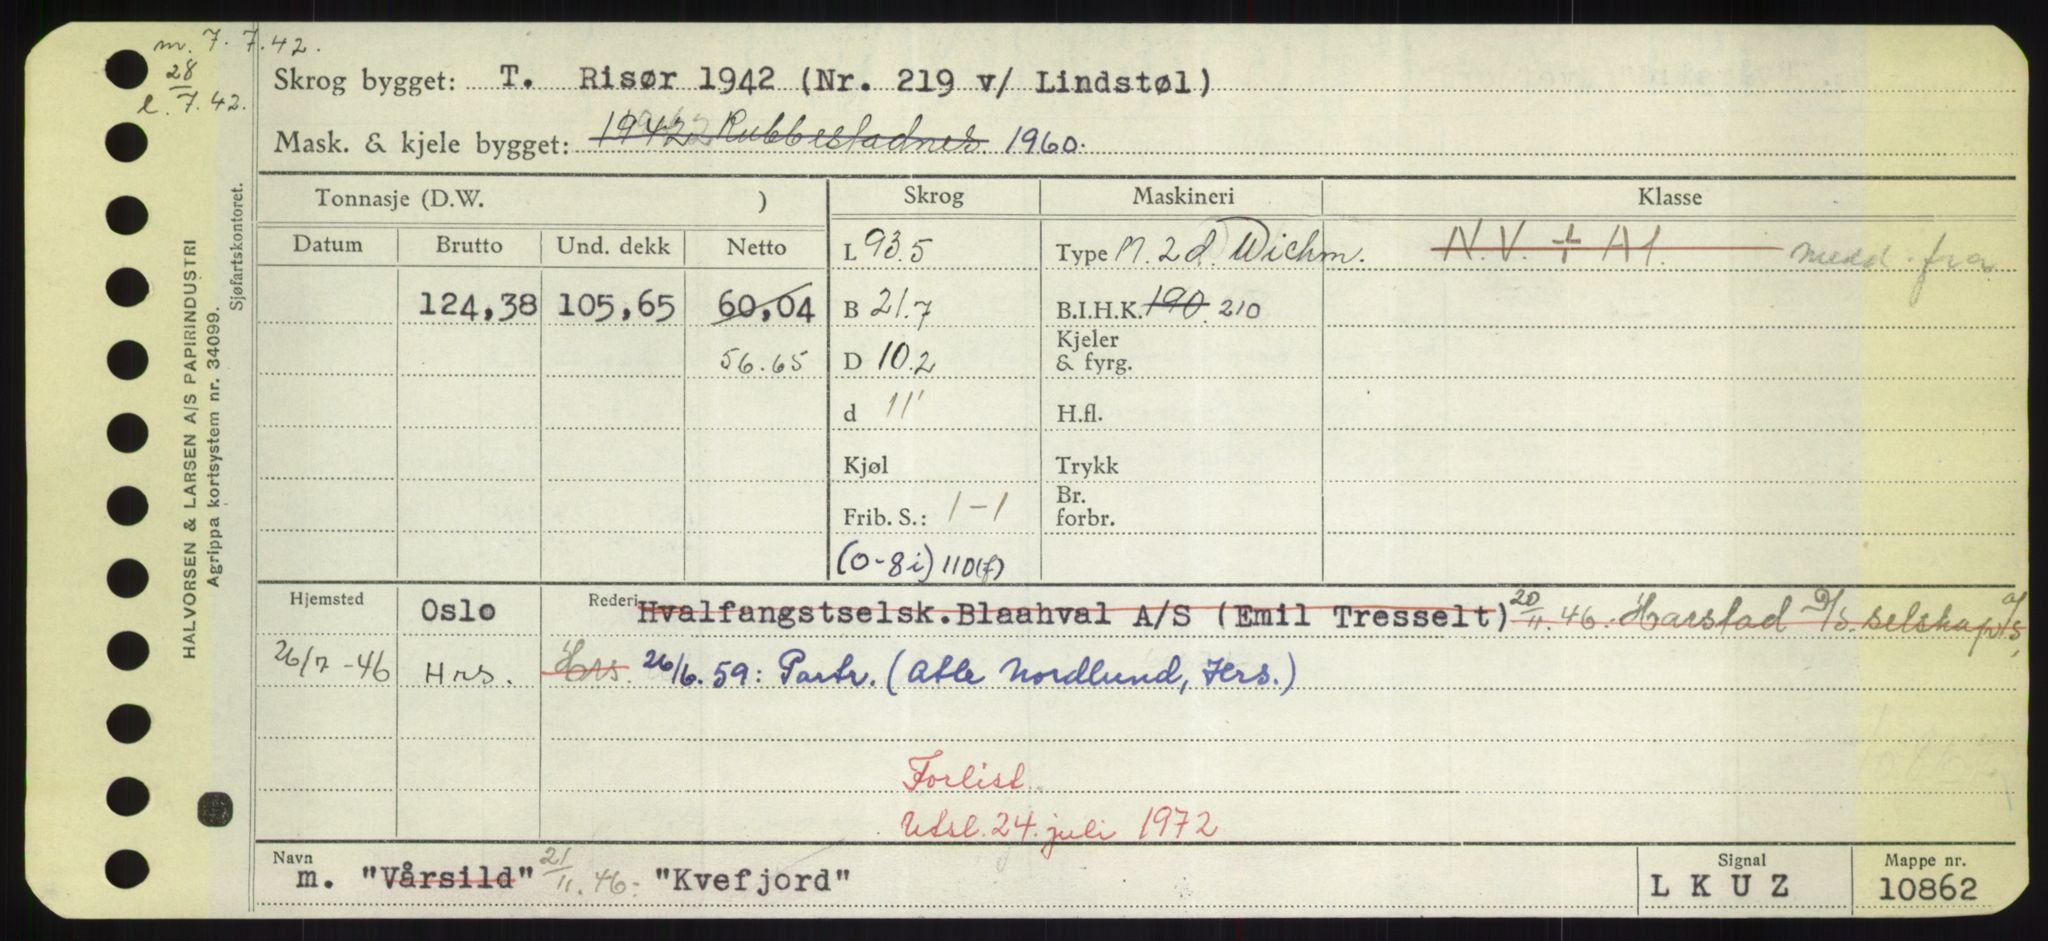 m. 7. 7.42.
28
l. 7.42.
Skrog bygget: T. Risør 1942 (Nr. 219 v/ Lindstøl)
Mask. & kjele bygget: 1942 Rubbestadnes 1960.
HALVORSEN & LARSEN A/S PAPIRINDUSTRI
Agrippa kortsystem nr. 34099.
Sjøfartskontoret.
Tonnasje (D.W. ) Skrog Maskineri Klasse
Datum Brutto Und. dekk Netto L 93.5 Type M. 2 d. Wichm. N.V. + A1. medd. fra
124,38 105,65 60,04 B 21.7 B.I.H.K. 190. 210
56.65 D 10.2 Kjeler & fyrg.
d 11' H.fl.
Kjøl Trykk
Frib. S.: 1-1 Br. forbr.
(0-8i) 110(f)
Hjemsted Oslo Rederi Hvalfangstselsk. Blaahval A/S (Emil Tresselt) 20/11.46. Harstad D/S. selskap A/S,
26/7-46 Hrs. Hrs. 26/6.59: Partr. (Atle Nordlund, Hrs.)
Forlist.
Utsl. 24. juli 1972
Navn Signal Mappe nr.
m. "Vårsild" 21/11.46- "Kvefjord" L K U Z 10862